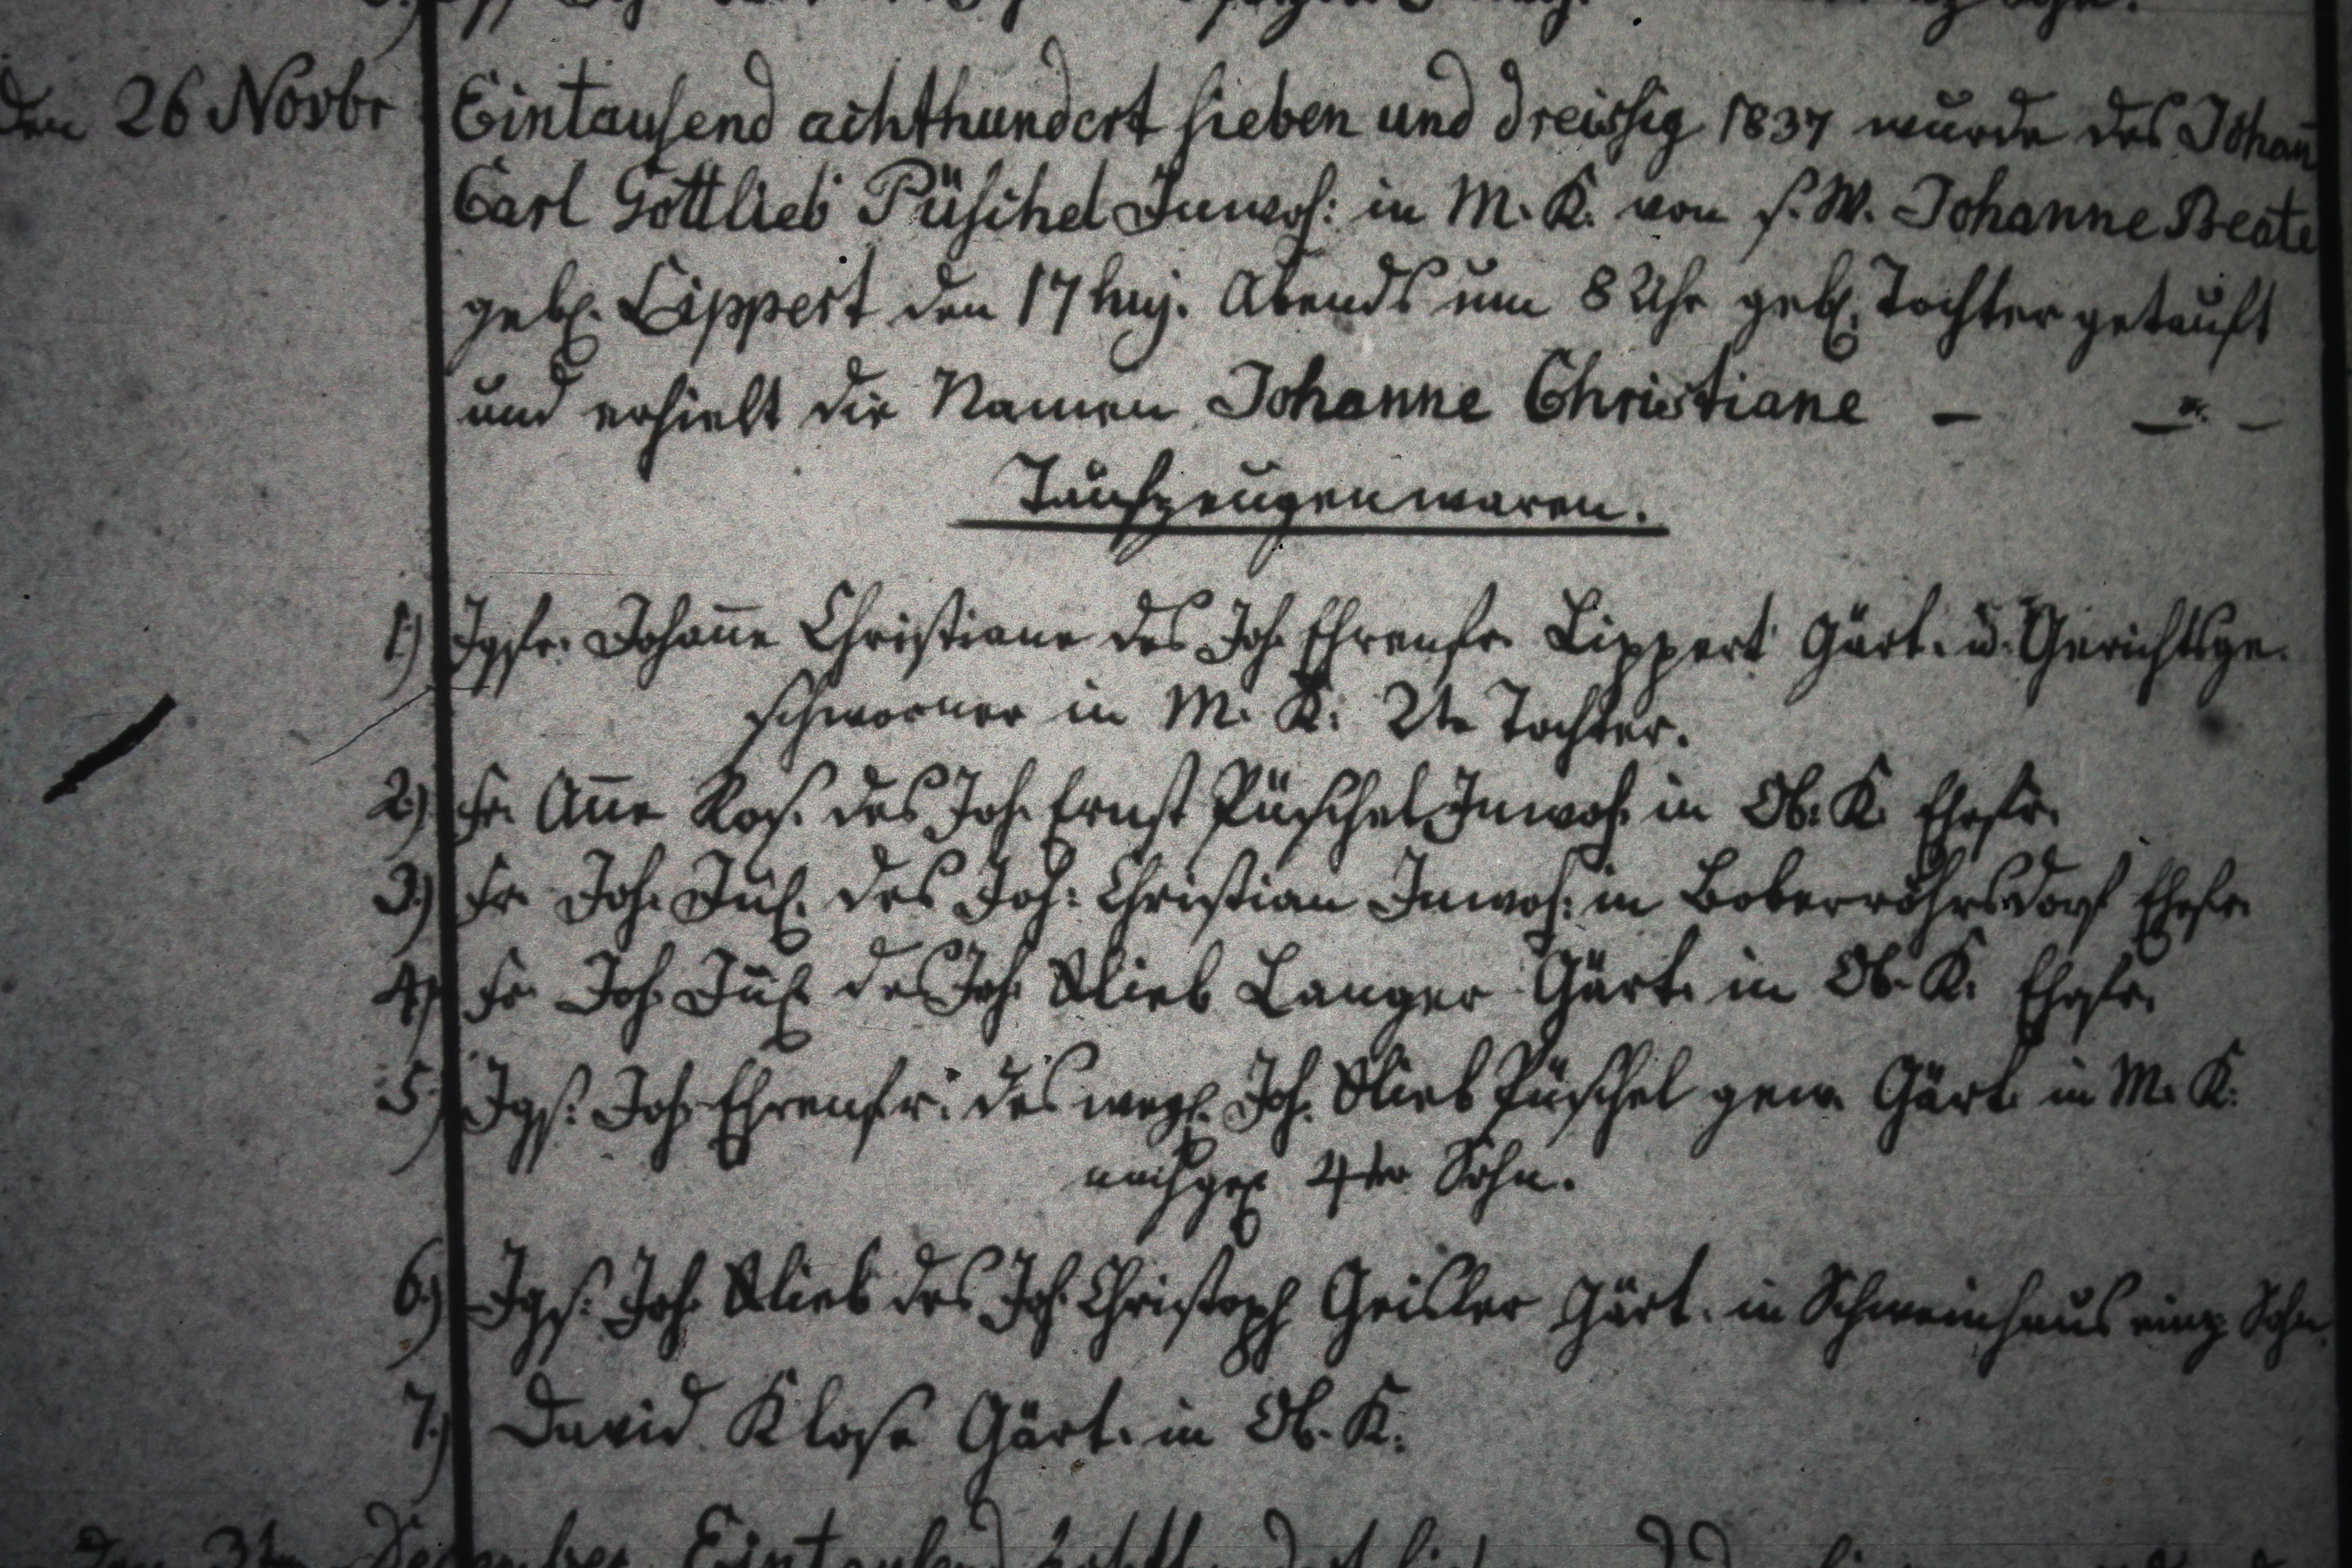 den 26 Novbr Eintausend achthundert sieben und dreissig 1837 wurde des Johañ
Carl Gottlieb Püschel Inwoh: in M. K. von s. W. Johanne Beate
geb. Lippert den 17 huj. Abends um 8 Uhr geb. Tochter getauft
und erhielt die Namen Johanne Christiane –
Taufzeugen waren.
1.) Jgfr. Johañe Christiane des Joh. Ehrenfr. Lippert Gärt. u. Gerichtsge-
schworner in M. K. 2te Tochter.
2.) Fr. Añe Ros. des Joh. Ernst Püschel Inwoh. in Ob. K. Ehefr.
3.) Fr. Joh. Jul. des Joh: Christian Inwoh: in Boberröhrsdorf Ehefr.
4.) Fr. Joh. Jul. des Joh. Glieb Langer Gärt. in Ob. K. Ehefr.
5.) Jgs. Joh. Ehrenfr. des weyl. Joh. Glieb Püschel gew. Gärt. in M. K.
nachgel. 4ter Sohn.
6.) Jgs. Joh. Glieb des Joh. Christoph Geisler Gärt. in Schweinhaus einz. Sohn.
7.) David Klose Gärt. in Ob. K.